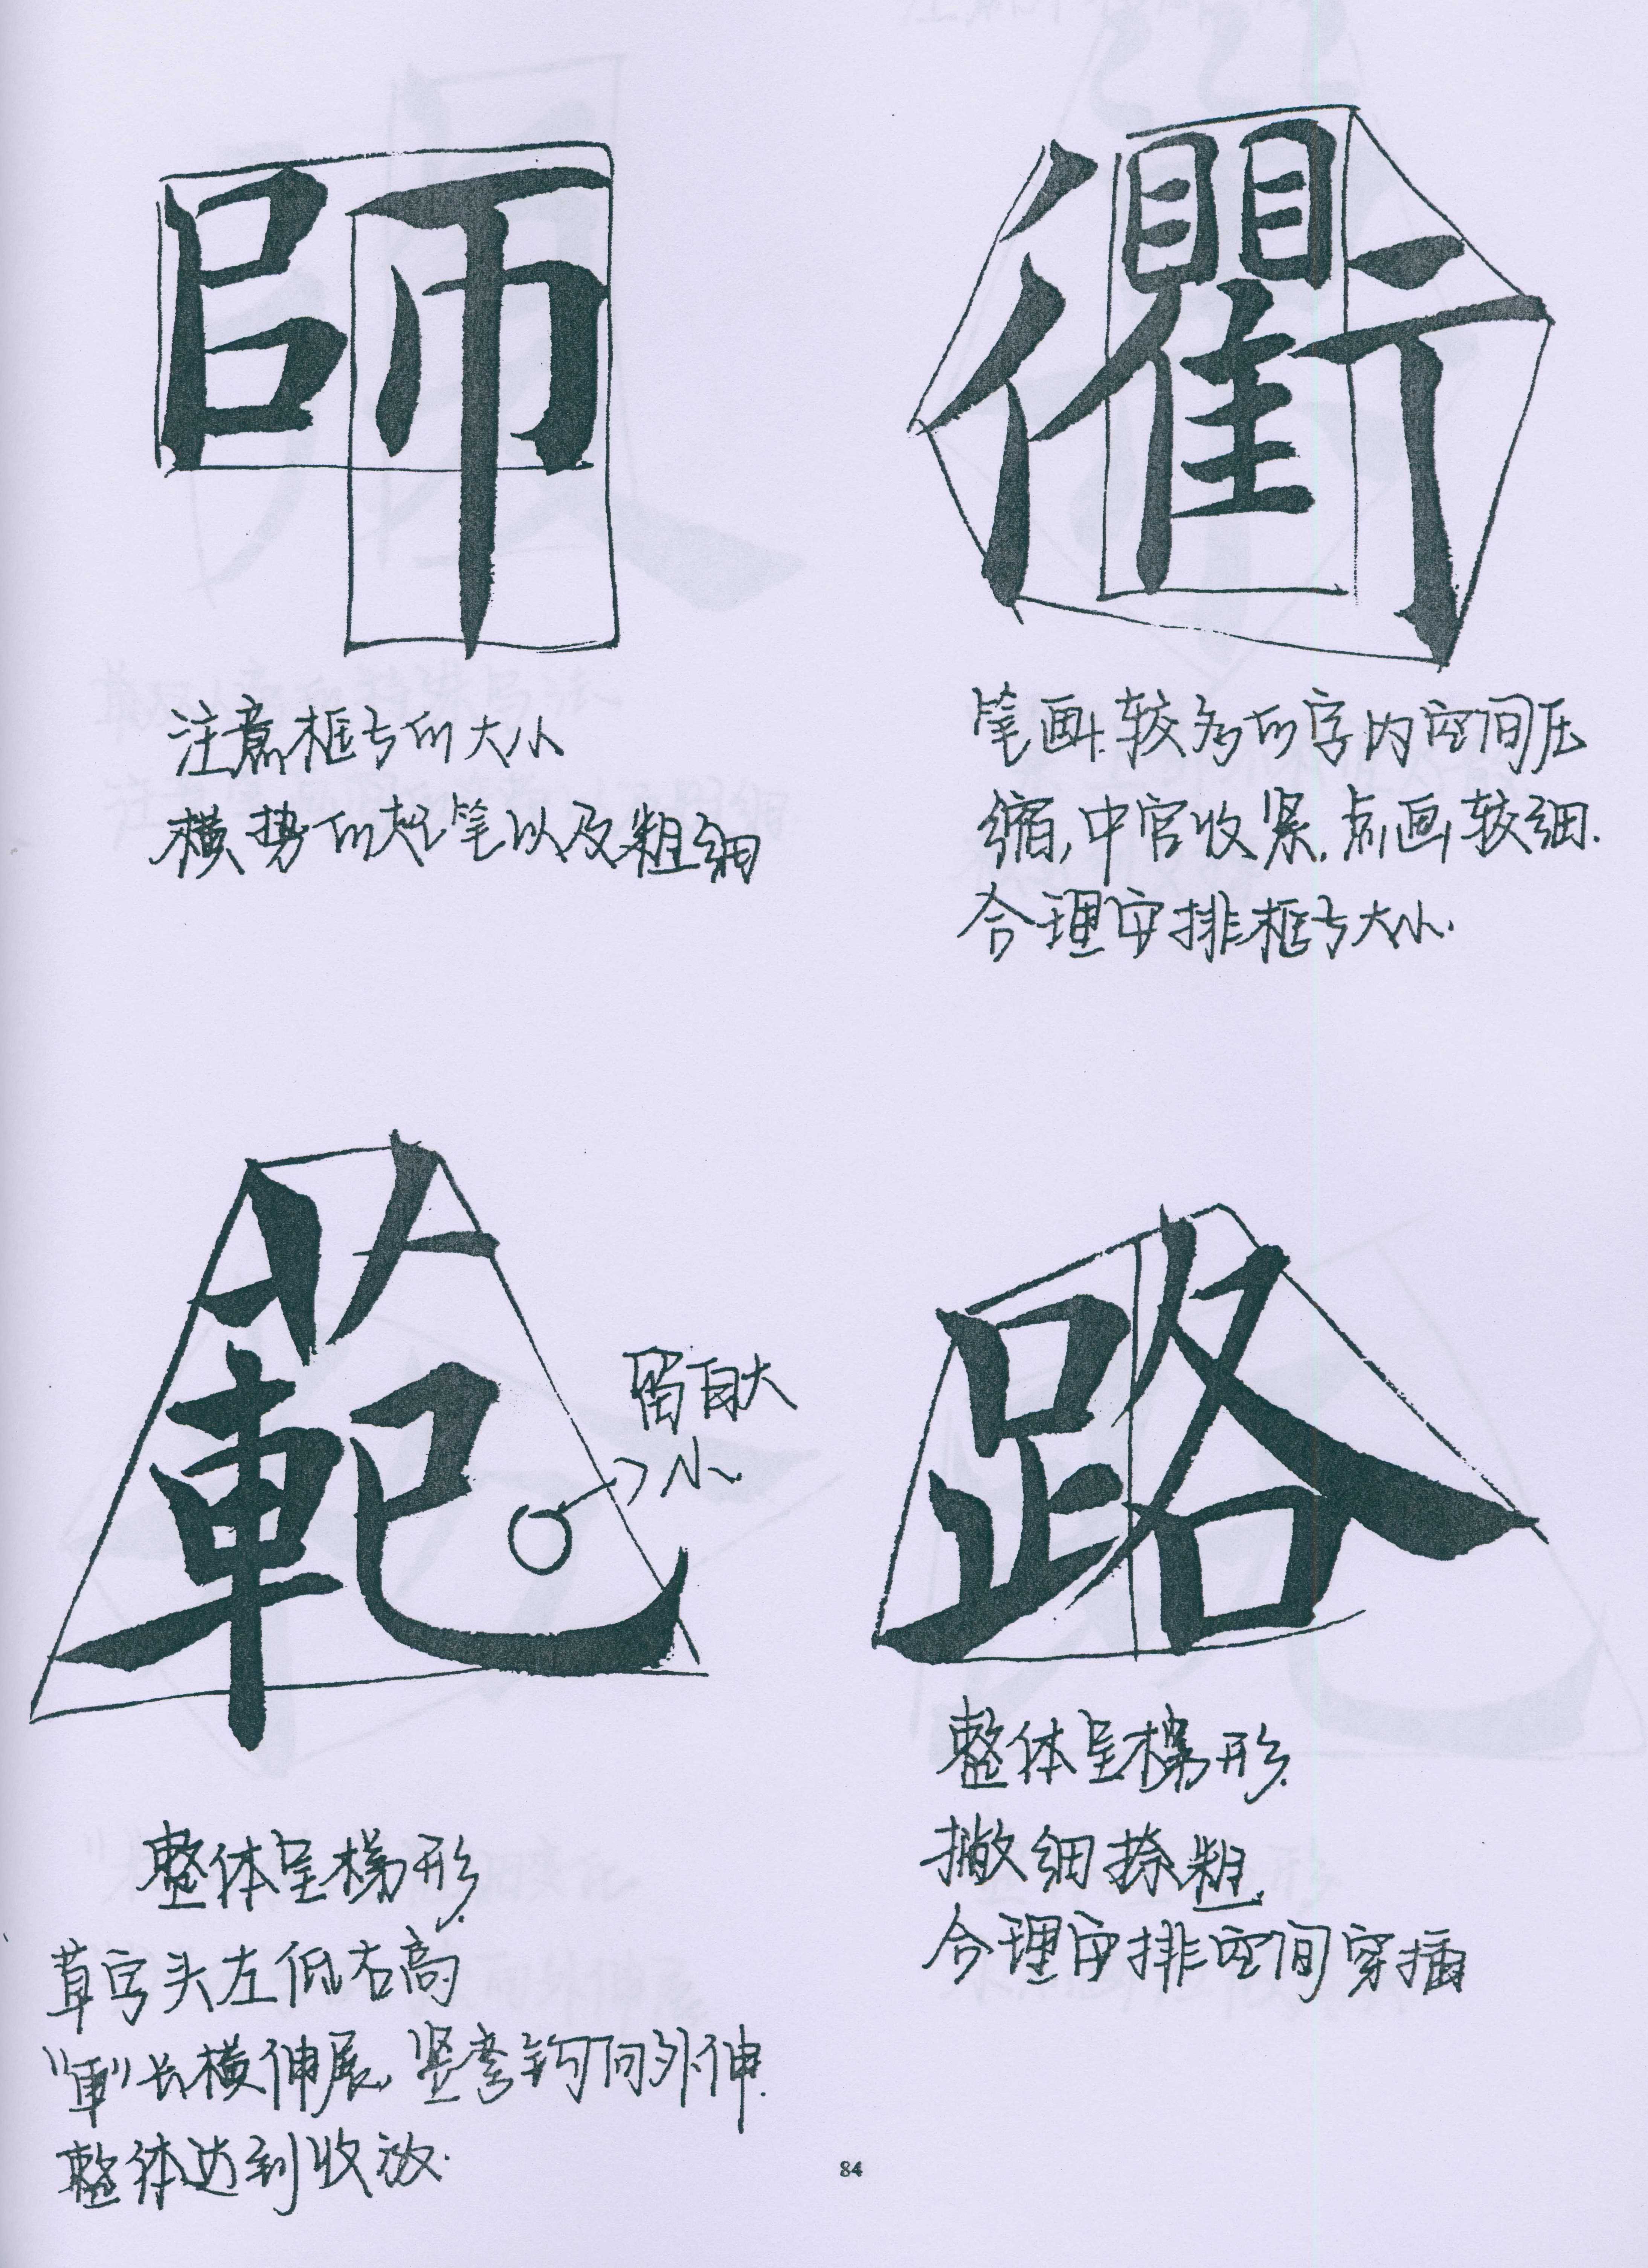 師
注意框与的大小
横势的起笔以及粗细
衢
笔画较多的字内空间压
缩,中宫收紧.点画较细.
合理安排框与大小.
範
留白大
小
整体呈梯形.
草字头左低右高
"車"长横伸展,竖弯钩向外伸.
整体达到收放.
路
整体呈梯形.
撇细捺粗.
合理安排空间穿插
84